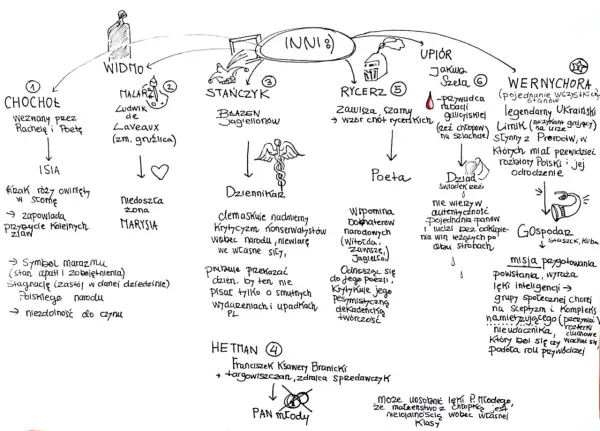 INNI :)
①
CHOCHOŁ
wezwany przez
Rachelę i Poetę
ISIA
Krzak róży owinięty
w słomę
→ zapowiada
przybycie kolejnych
zjaw
→ Symbol marazmu
(stan apatii i zobojętnienia)
Stagnację (zastój w danej dziedzinie)
Polskiego narodu
→ niezdolność do czynu
WIDMO
②
MALARZ
Ludwik
de
Laveaux
(zm. gruźlica)
Niedoszła
żona
MARYSIA
③
STAŃCZYK
BŁAZEN
Jagiellonów
Dziennikarz
demaskuje nadmierny
krytycyzm konserwatystów
wobec narodu, niewiarę
we własne siły,
próbuje przekazać
dzien. by ten nie
pisał tylko o smutnych
wydarzeniach i upadkach
PL
HETMAN ④
Franciszek Ksawery Branicki
→ targowiczan, zdrajca sprzedawczyk
PAN młody
może uosabiać lęki P. Młodego,
że małżeństwo z chłopką jest
nielojalnością wobec własnej
klasy
RYCERZ ⑤
Zawisza Czarny
→ wzór cnót rycerskich
Poeta
Wspomina
bohaterów
narodowych
(Witolda,
Zawiszę,
Jagiełło)
Odnosząc się
do jego poezji,
krytykuje jego
pesymistyczną
dekadencką
twórczość
UPIÓR
Jakub
Szela ⑥
→ przywódca
rabacji
galicyjskiej
(rzeź chłopów
na szlachcie)
Dziad
świadek rzezi
nie wierzy w
autentyczność
pojednania panów
i ludzi bez odkupie-
nia win leżących po
obu stronach
WERNYCHORA
(pojednanie wszystkich
stanów
legendarny ukraiński
Lirnik (grający
na lirze)
Słynny z proroctw, w
których miał przewidzieć
rozbiory Polski i jej
odrodzenie
Gospodarz
→ Staszek, Kuba
misja przygotowania
powstania, wyraża
lęki inteligencji →
grupy społecznej chorej
na sceptyzm i kompleks
nieudacznika,
rozterki
duchowe
który boi się czy
podoła roli przywódczej